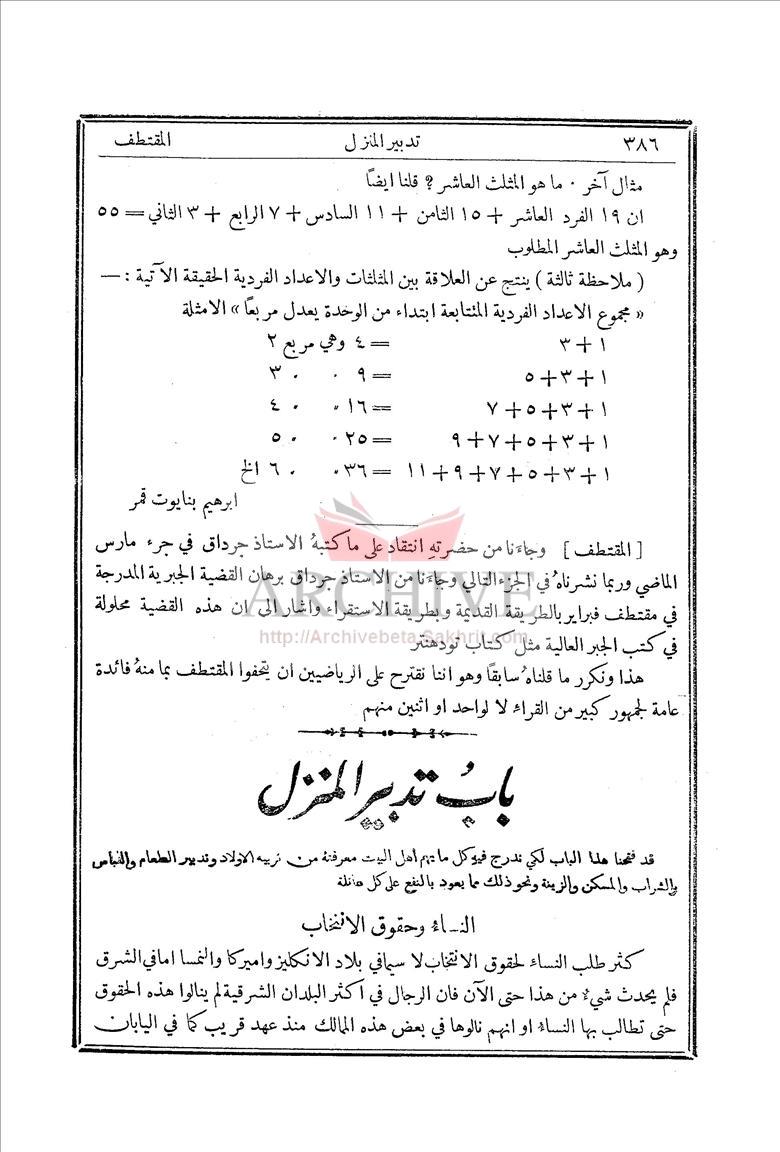 ٣٨٦ تدبير المنزل المقتطف
مثال آخر · ما هو المثلث العاشر ? قلنا ايضاً
ان ١٩ الفرد العاشر + ١٥ الثامن + ١١ السادس + ٧ الرابع + ٣ الثاني = ٥٥
وهو المثلث العاشر المطلوب
( ملاحظة ثالثة ) ينتج عن العلاقة بين المثلثات والاعداد الفردية الحقيقة الآتية : —
« مجموع الاعداد الفردية المتتابعة ابتداء من الوحدة يعدل مربعاً » الامثلة
١ + ٣ = ٤ وهي مربع ٢
١ + ٣ + ٥ = ٩ ٠ ٠ ٣
١ + ٣ + ٥ + ٧ = ١٦ ″ ٠ ٤
١ + ٣ + ٥ + ٧ + ٩ = ٢٥ ٠٠ ٠ ٥
١ + ٣ + ٥ + ٧ + ٩ + ١١ = ٣٦ ٠٠ ٠ ٦ الخ
ابرهيم بنايوت قمر
[ المقتطف ] وجاءنا من حضرتهِ انتقاد على ما كتبهُ الاستاذ جرداق في جزء مارس
الماضي وربما نشرناهُ في الجزء التالي وجاءنا من الاستاذ جرداق برهان القضية الجبرية المدرجة
ARCHIVE
في مقتطف فبراير بالطريقة القديمة وبطريقة الاستقراء واشار الى ان هذه القضية محلولة
http://Archivebeta.Sakhrit.com
في كتب الجبر العالية مثل كتاب تودهنتر
هذا ونكرر ما قلناهُ سابقاً وهو اننا نقترح على الرياضيين ان يتحفوا المقتطف بما منهُ فائدة
عامة لجمهور كبير من القراء لا لواحد او اثنين منهم
باب تدبير المنزل
قد فتحنا هذا الباب لكي ندرج فيه كل ما يهم اهل البيت معرفته من تربية الاولاد وتدبير الطعام واللباس
والشراب والمسكن والزينة ونحو ذلك مما يعود بالنفع على كل عائلة
النساء وحقوق الانتخاب
كثر طلب النساء لحقوق الانتخاب لا سيما في بلاد الانكليز واميركا والنمسا اما في الشرق
فلم يحدث شيءٌ من هذا حتى الآن فان الرجال في اكثر البلدان الشرقية لم ينالوا هذه الحقوق
حتى تطالب بها النساءُ او انهم نالوها في بعض هذه الممالك منذ عهد قريب كما في اليابان